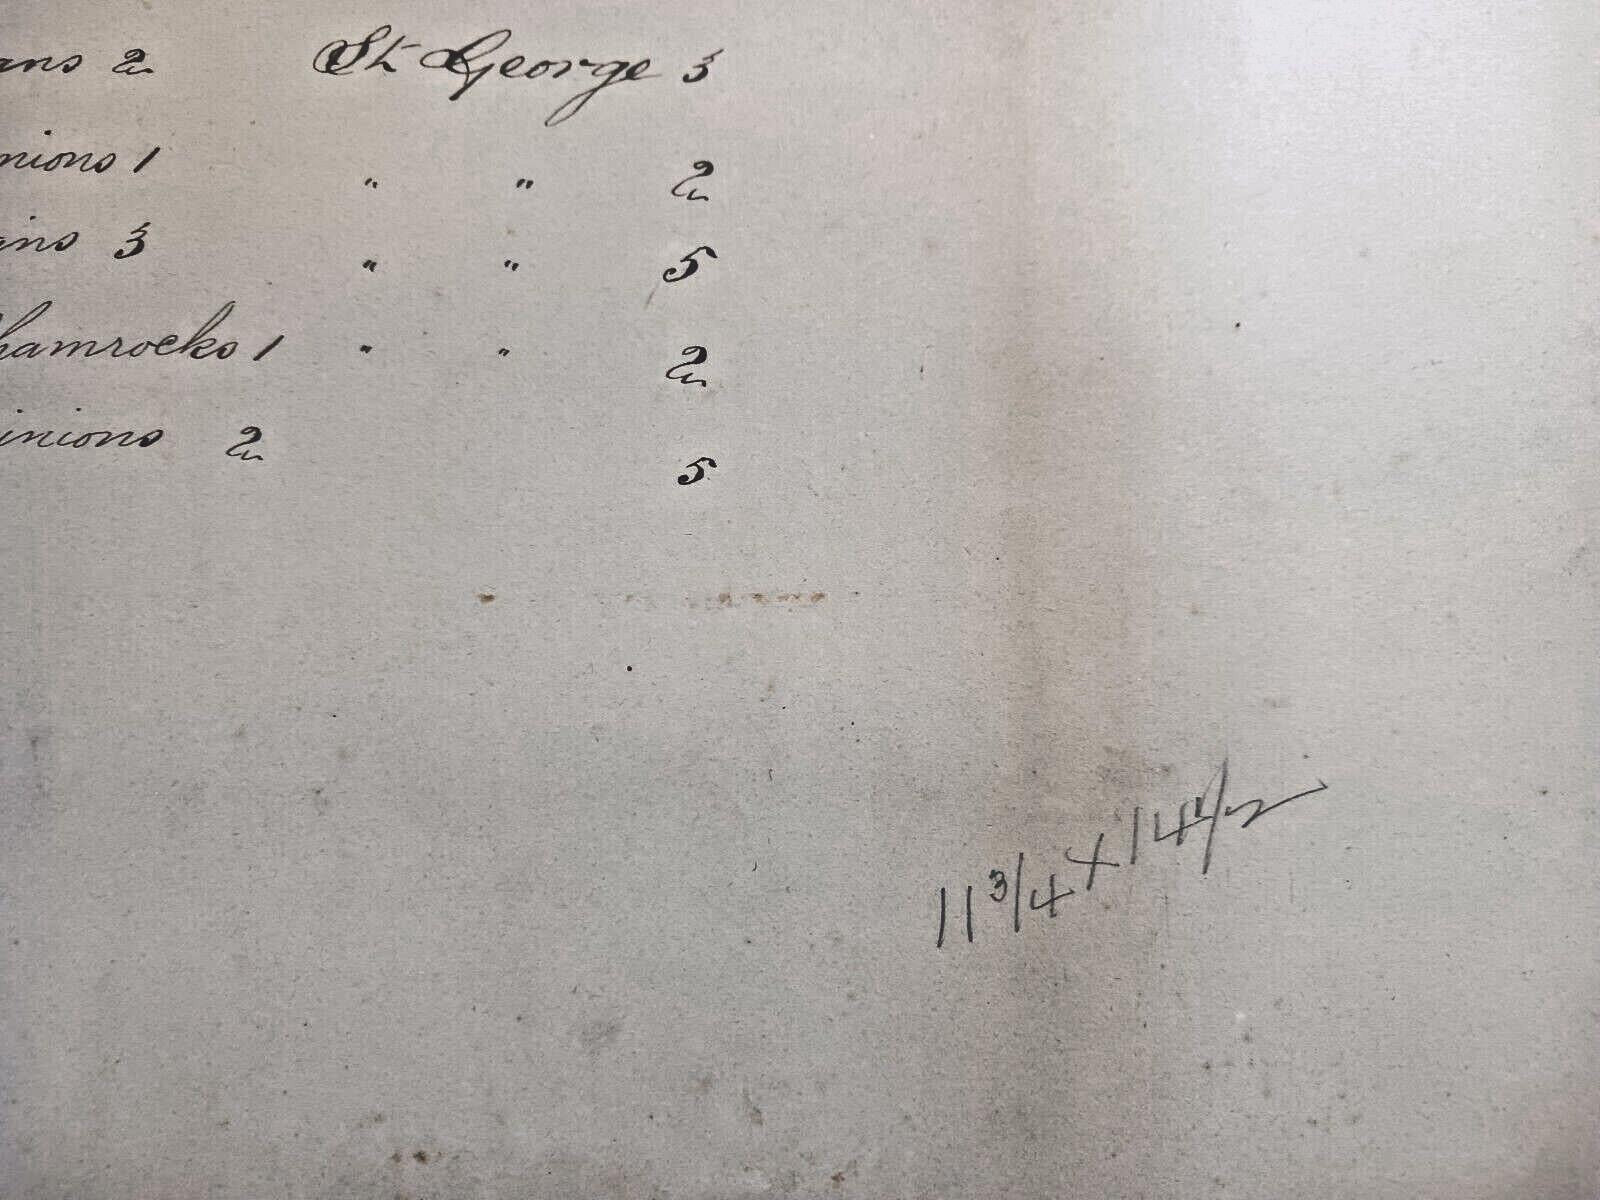 ans 2 St George 3
nions 1 " " 2
ans 3 " " 5
hamrocks 1 " " 2
inions 2 5
11 3/4 x 14 1/2